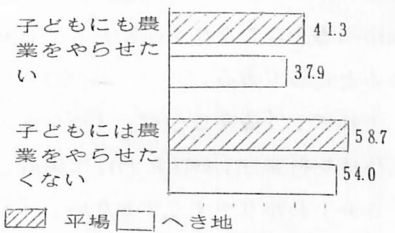 子どもにも農
業をやらせた
い
41.3
37.9
子どもには農
業をやらせた
くない
58.7
54.0
平場 へき地